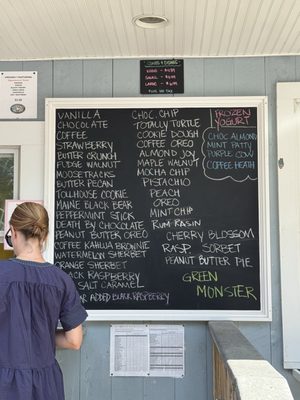 VANILLA
CHOCOLATE
COFFEE
STRAWBERRY
BUTTER CRUNCH
FUDGE WALNUT
MOOSETRACKS
BUTTER PECAN
TOLLHOUSE COOKIE
MAINE BLACK BEAR
PEPPERMINT STICK
DEATH BY CHOCOLATE
PEANUT BUTTER OREO
COFFEE KAHLUA BROWNIE
WATERMELON SHERBET
ORANGE SHERBET
BLACK RASPBERRY
SALT CARAMEL
ADDED BLACK RASPBERRY
CHOC. CHIP
TOTALLY TURTLE
COOKIE DOUGH
COFFEE OREO
ALMOND JOY
MAPLE WALNUT
MOCHA CHIP
PISTACHIO
PEACH
OREO
MINT CHIP
RUM RAISIN
CHERRY BLOSSOM
RASP. SORBET
PEANUT BUTTER PIE
GREEN
MONSTER
FROZEN
YOGURT
CHOC ALMOND
MINT PATTY
PURPLE COW
COFFEE HEATH